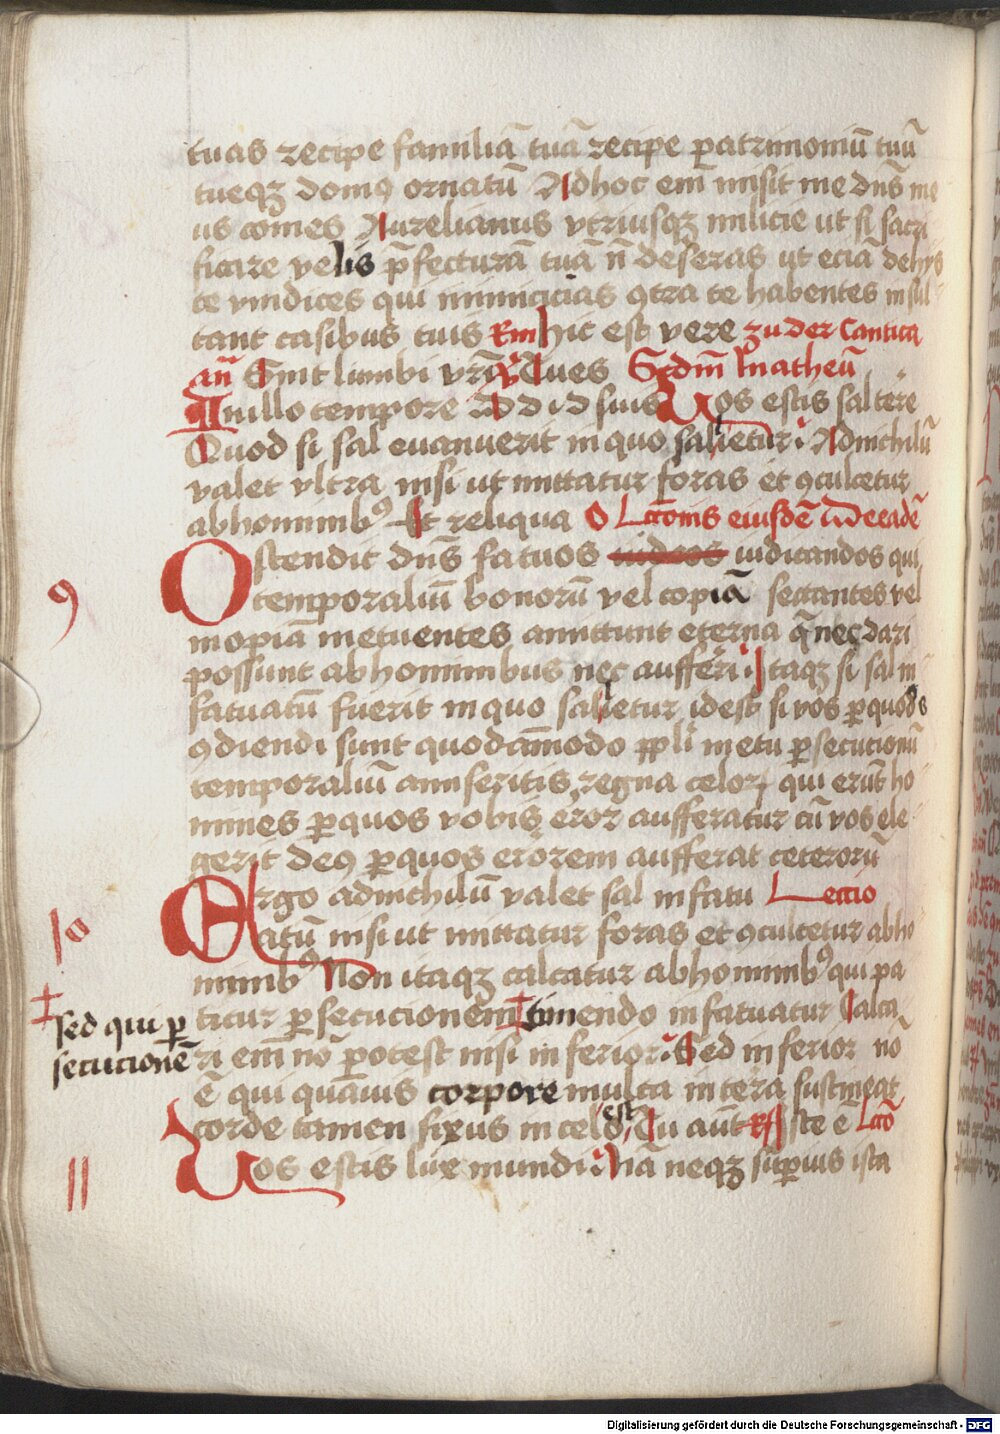 tuas recipe familiā tuā recipe patrimoniū tuū
tueqꝫ domꝰ ornatū Adhoc em̄ misit me dn̄s me
us comes Aurelianus vtriusqꝫ milicie ut si sacri
ficare velis p̄fecturā tuā n̄ deseras ut eciā de hys
te vindices qui inimicicias ꝯtra te habentes insul
tant casibus tuis Rm hic est vere zu der Cantica
an̄ Sint lumbi vr̄i ℣ Tues Scdm̄ Matheū
In illo tempore D d i d suis Uos estis sal tere
Quod si sal euanuerit in quo salietur Adnichilū
valet vltra nisi ut mittatur foras et ꝯculcetur
abhominibꝰ Et reliqua O Lcc̄onis eiusdē
9
Ostendit dn̄s fatuos iudicandos qui
temporaliū bonorū vel copiā sectantes vel
inopiā metuentes amittunt eterna q̄ nec dari
possunt abhominibus nec aufferri Itaqꝫ si sal in
fatuatū fuerit in quo salietur idest si vos ꝑ quos
ꝯdiendi sunt quodāmodo ppl̄i metu ꝑsecutionū
temporaliū amiseritis regna celoꝝ qui erūt ho
mines ꝑ quos vobis error aufferatur cū vos ele
gerit deꝰ ꝑ quos errorem aufferat ceterorū
10
Ergo adnichilū valet sal infatu Leccio
atū nisi ut mittatur foras et ꝯculcetur abho
minibꝰ Non itaqꝫ calcatur abhominibꝰ qui pa
titur ꝑsecucionem timendo infatuatur Calca
sed qui ꝑ
secucionē
ri em̄ nō potest nisi inferior Sed inferior nō
ē qui quāuis corpore multa in terra sustineat
corde tamen fixus in celo est Tu aūt Rs Iste ē Lcc̄o
11
Uos estis lux mundi Nā neqꝫ suꝑius ista
Digitalisierung gefördert durch die Deutsche Forschungsgemeinschaft - DFG